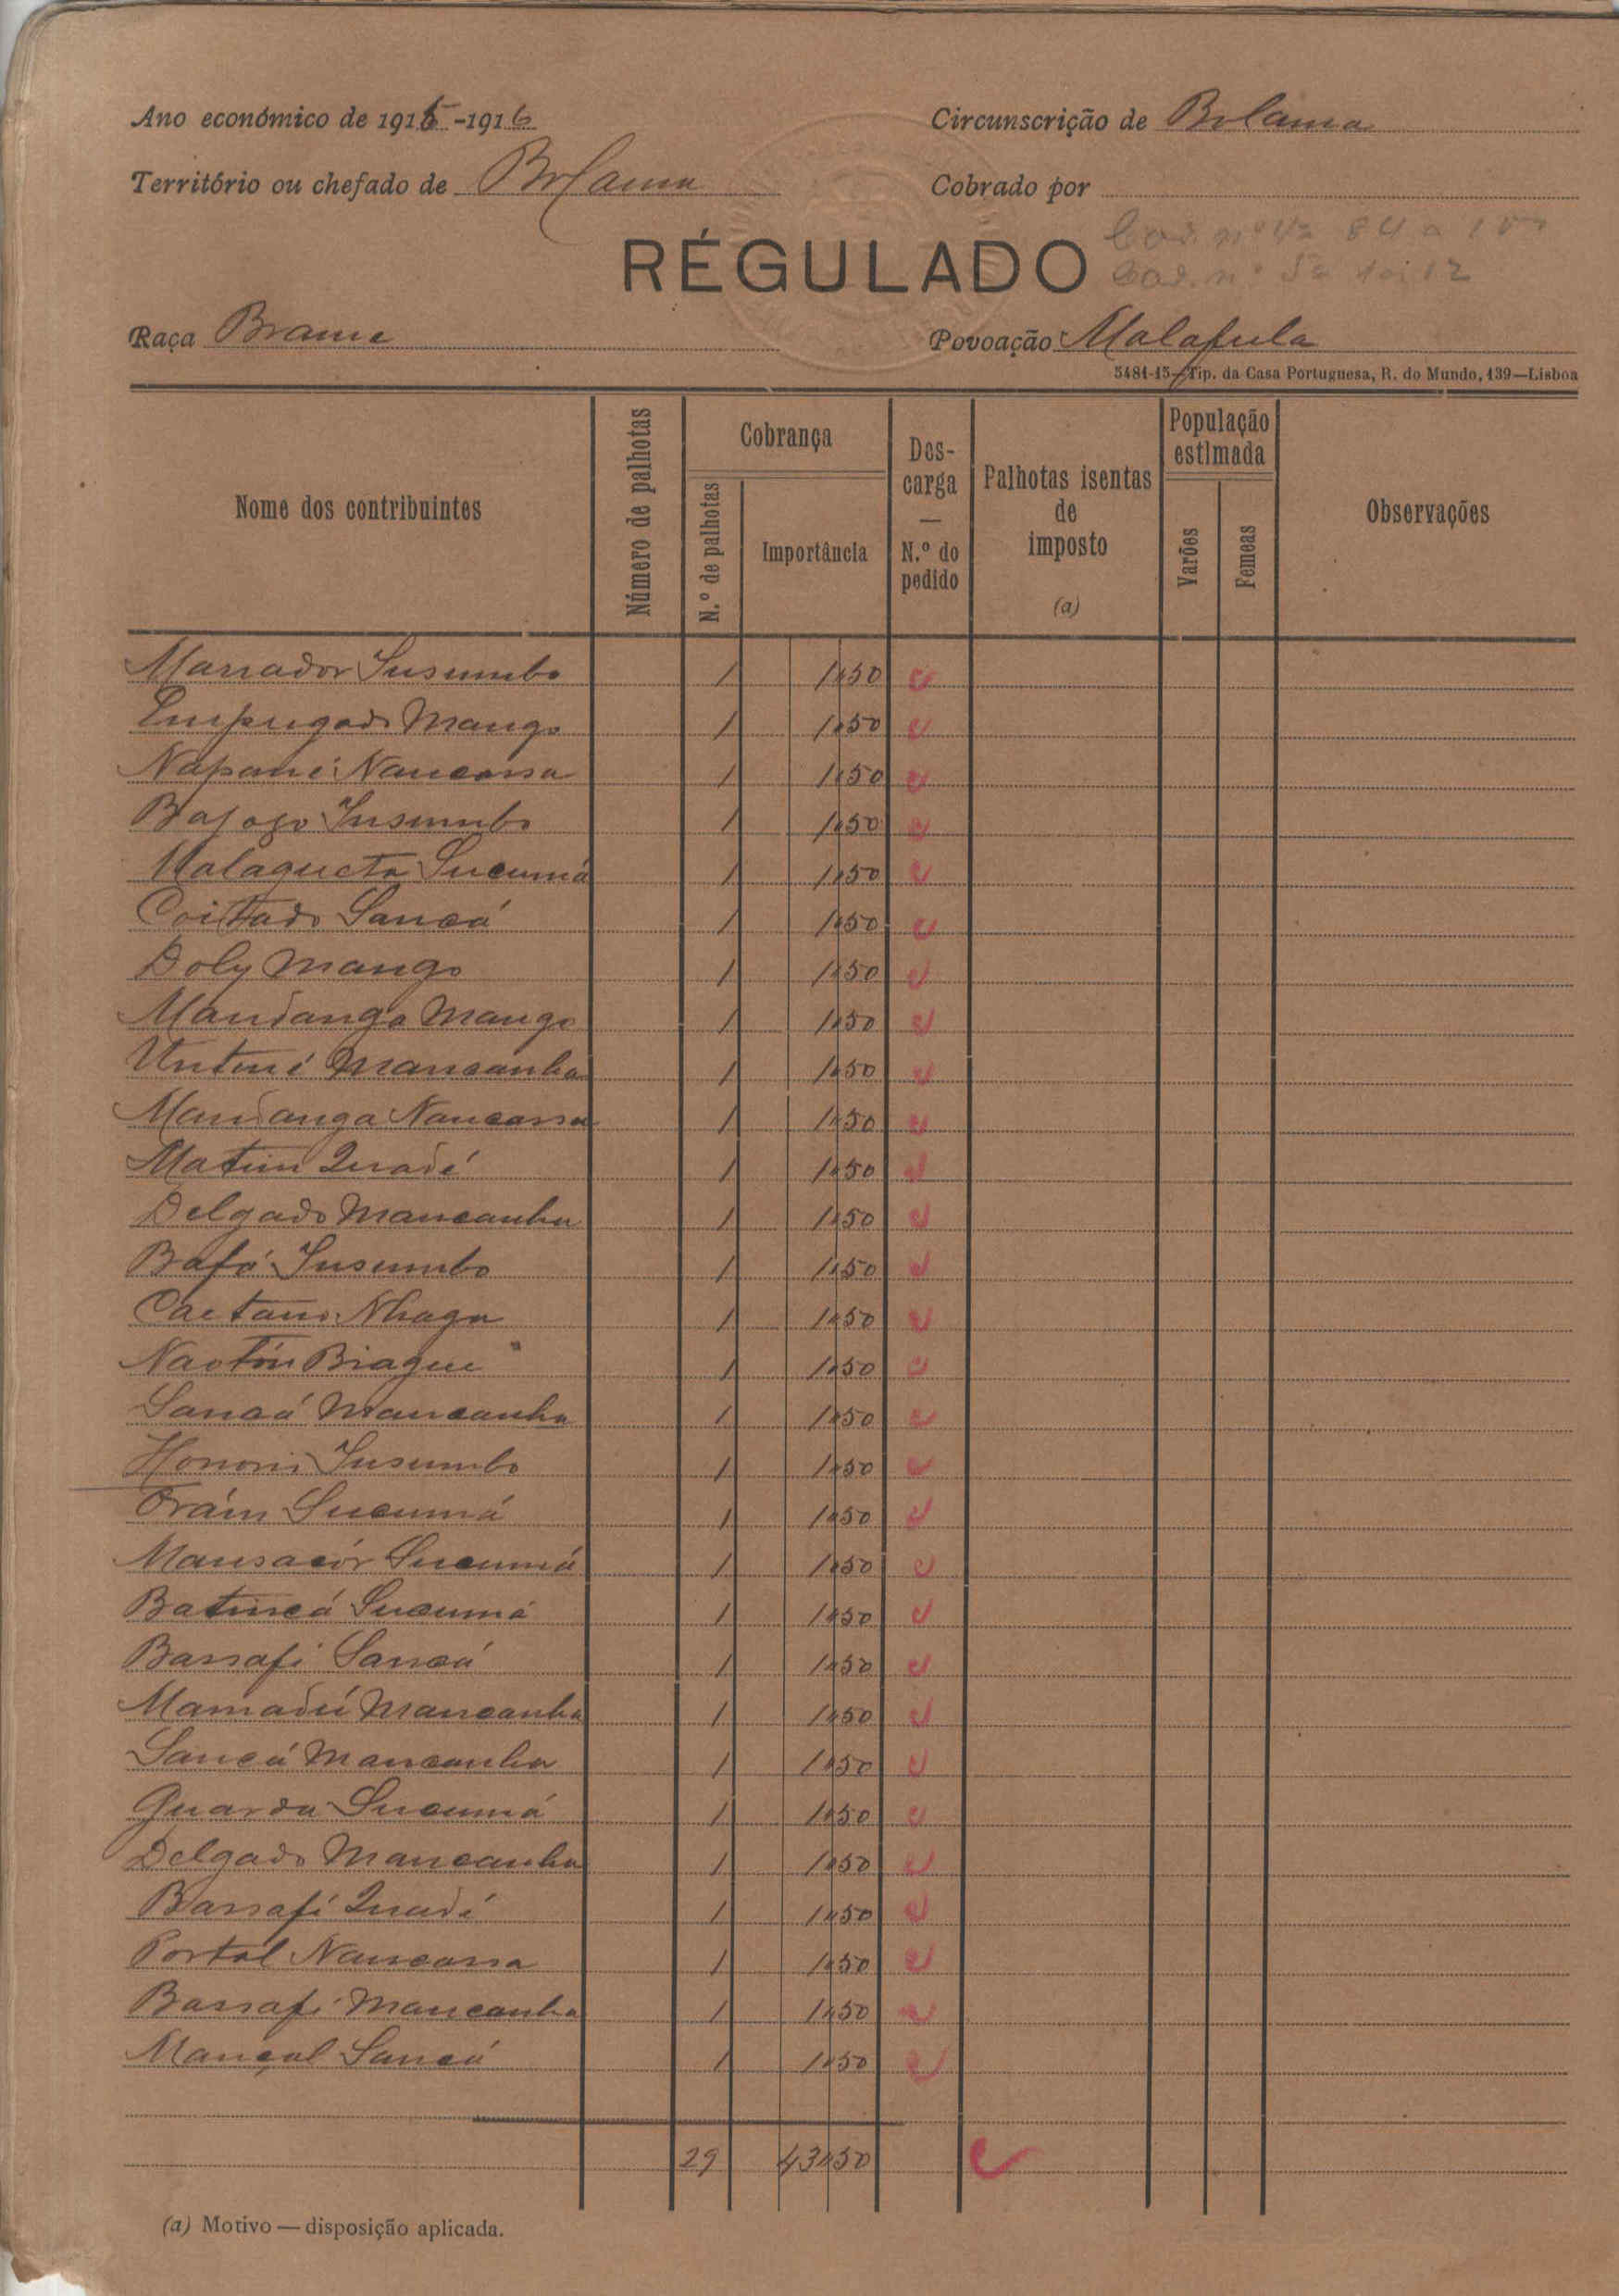 Ano económico de 1915-1916
Circunscrição de Bolama
Território ou chefado de Bolama
Cobrado por
RÉGULADO
Cad. nº 4º 84 a
Cad. nº 5º 1 a 12
Raça Brame
Povoação Malafula
5481-15—Tip. da Casa Portuguesa, R. do Mundo, 139—Lisboa
Nome dos contribuintes
Número de palhotas
Cobrança
N.º de palhotas
Importância
Descarga — N.º do pedido
Palhotas isentas de imposto (a)
População estimada
Varões
Femeas
Observações
Marrador Insumbo 1 1$50
Empregado Mango 1 1$50
Napané Nancassa 1 1$50
Bajogo Insumbo 1 1$50
Malagueta Sucumá 1 1$50
Coitado Sancá 1 1$50
Doly Mango 1 1$50
Mandanga Mango 1 1$50
Mancanha 1 1$50
Mandanga Nancassa 1 1$50
Matim Quadé 1 1$50
Delgado Mancanha 1 1$50
Bafó Insumbo 1 1$50
Caetano Nhaga 1 1$50
Naotón Biague 1 1$50
Sancá Mancanha 1 1$50
Honorio Insumbo 1 1$50
Orám Sucumá 1 1$50
Mansacór Sucumá 1 1$50
Batincá Sucumá 1 1$50
Bassafi Sancá 1 1$50
Mamadú Mancanha 1 1$50
Sancá Mancanha 1 1$50
Guarda Sucumá 1 1$50
Delgado Mancanha 1 1$50
Bassafi Quadé 1 1$50
Portal Nancassa 1 1$50
Bassafi Mancanha 1 1$50
Mançal Sancá 1 1$50
29 43$50
(a) Motivo — disposição aplicada.